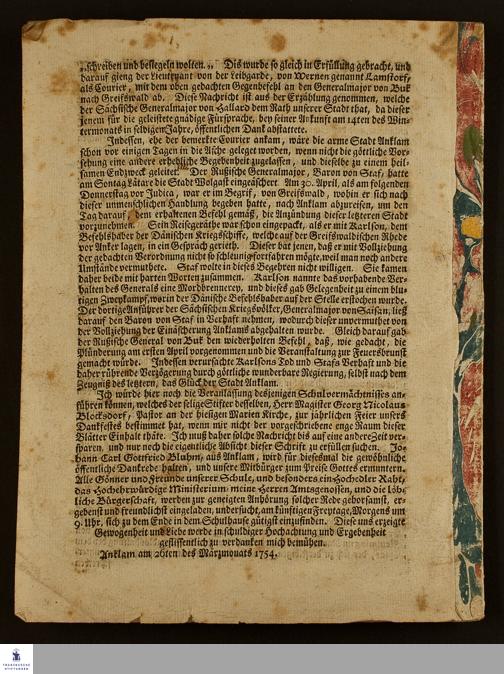 „schreiben und besiegeln wolten.„ Dis wurde so gleich in Erfüllung gebracht, und
darauf gieng der Lieutenant von der Leibgarde, von Wernen genannt Lamstorf,
als Courier, mit dem oben gedachten Gegenbefehl an den Generalmajor von Buk
nach Greifswald ab. Diese Nachricht ist aus der Erzählung genommen, welche
der Sächsische Generalmajor von Hallard dem Rath unserer Stadt that, da dieser
jenem für die geleistete gnädige Fürsprache, bey seiner Ankunft am 14ten des Win-
termonats in selbigem Jahre, öffentlichen Dank abstattete.
Indessen, ehe der bemerkte Courier ankam, wäre die arme Stadt Anklam
schon vor einigen Tagen in die Asche geleget worden, wenn nicht die göttliche Vor-
sehung eine andere erhebliche Begebenheit zugelassen, und dieselbe zu einem heil-
samen Endzweck geleitet. Der Rußische Generalmajor, Baron von Staf, hatte
am Sontag Lätare die Stadt Wolgast eingeäschert. Am 30. April, als am folgenden
Donnerstag vor Judica, war er im Begrif, von Greifswald, wohin er sich nach
dieser unmenschlichen Handlung begeben hatte, nach Anklam abzureisen, um den
Tag darauf, dem erhaltenen Befehl gemäß, die Anzündung dieser letzteren Stadt
vorzunehmen. Sein Reisegeräthe war schon eingepackt, als er mit Karlson, dem
Befehlshaber der Dänischen Kriegsschiffe, welche auf der Greifswaldischen Rhede
vor Anker lagen, in ein Gespräch gerieth. Dieser bat jenen, daß er mit Vollziehung
der gedachten Verordnung nicht so schleunig fortfahren mögte, weil man noch andere
Umstände vermuthete. Staf wolte in dieses Begehren nicht willigen. Sie kamen
daher beide mit harten Worten zusammen. Karlson nannte das vorhabende Ver-
halten des Generals eine Mordbrennerey, und dieses gab Gelegenheit zu einem blu-
tigen Zweykampf, worin der Dänische Befehlshaber auf der Stelle erstochen wurde.
Der dortige Anführer der Sächsischen Kriegsvölker, Generalmajor von Saisan, ließ
darauf den Baron von Staf in Verhaft nehmen, wodurch dieser unvermuthet von
der Vollziehung der Einäscherung Anklams abgehalten wurde. Gleich darauf gab
der Rußische General von Buk den wiederholten Befehl, daß, wie gedacht, die
Plünderung am ersten April vorgenommen und die Veranstaltung zur Feuersbrunst
gemacht würde. Indessen verursachte Karlsons Tod und Stafs Verhaft und die
daher rührende Verzögerung durch göttliche wunderbare Regierung, selbst nach dem
Zeugniß des letztern, das Glück der Stadt Anklam.
Ich würde hier noch die Veranlassung desjenigen Schulvermächtnisses an-
führen können, welches der selige Stifter desselben, Herr Magister Georg Nicolaus
Blocksdorf, Pastor an der hiesigen Marien Kirche, zur jährlichen Feier unsers
Dankfestes bestimmet hat, wenn mir nicht der vorgeschriebene enge Raum dieser
Blätter Einhalt thäte. Ich muß daher solche Nachricht bis auf eine andere Zeit ver-
sparen, und nur noch die eigentliche Absicht dieser Schrift zu erfüllen suchen. Jo-
hann Carl Gottfried Bluhm, aus Anklam, wird für diesesmal die gewöhnliche
öffentliche Dankrede halten, und unsere Mitbürger zum Preise Gottes ermuntern.
Alle Gönner und Freunde unserer Schule, und besonders ein Hochedler Raht,
das Hochehrwürdige Ministerium, meine Herren Amtsgenossen, und die löb-
liche Bürgerschaft, werden zur geneigten Anhörung solcher Rede gehorsamst, er-
gebenst und freundlichst eingeladen, und ersucht, am künftigen Freytage, Morgens um
9. Uhr, sich zu dem Ende in dem Schulhause gütigst einzufinden. Diese uns erzeigte
Gewogenheit und Liebe werde in schuldiger Hochachtung und Ergebenheit
geflissentlich zu verdanken mich bemühen.
Anklam am 26ten des Märzmonats 1754.
FRANCKESCHE
STIFTUNGEN